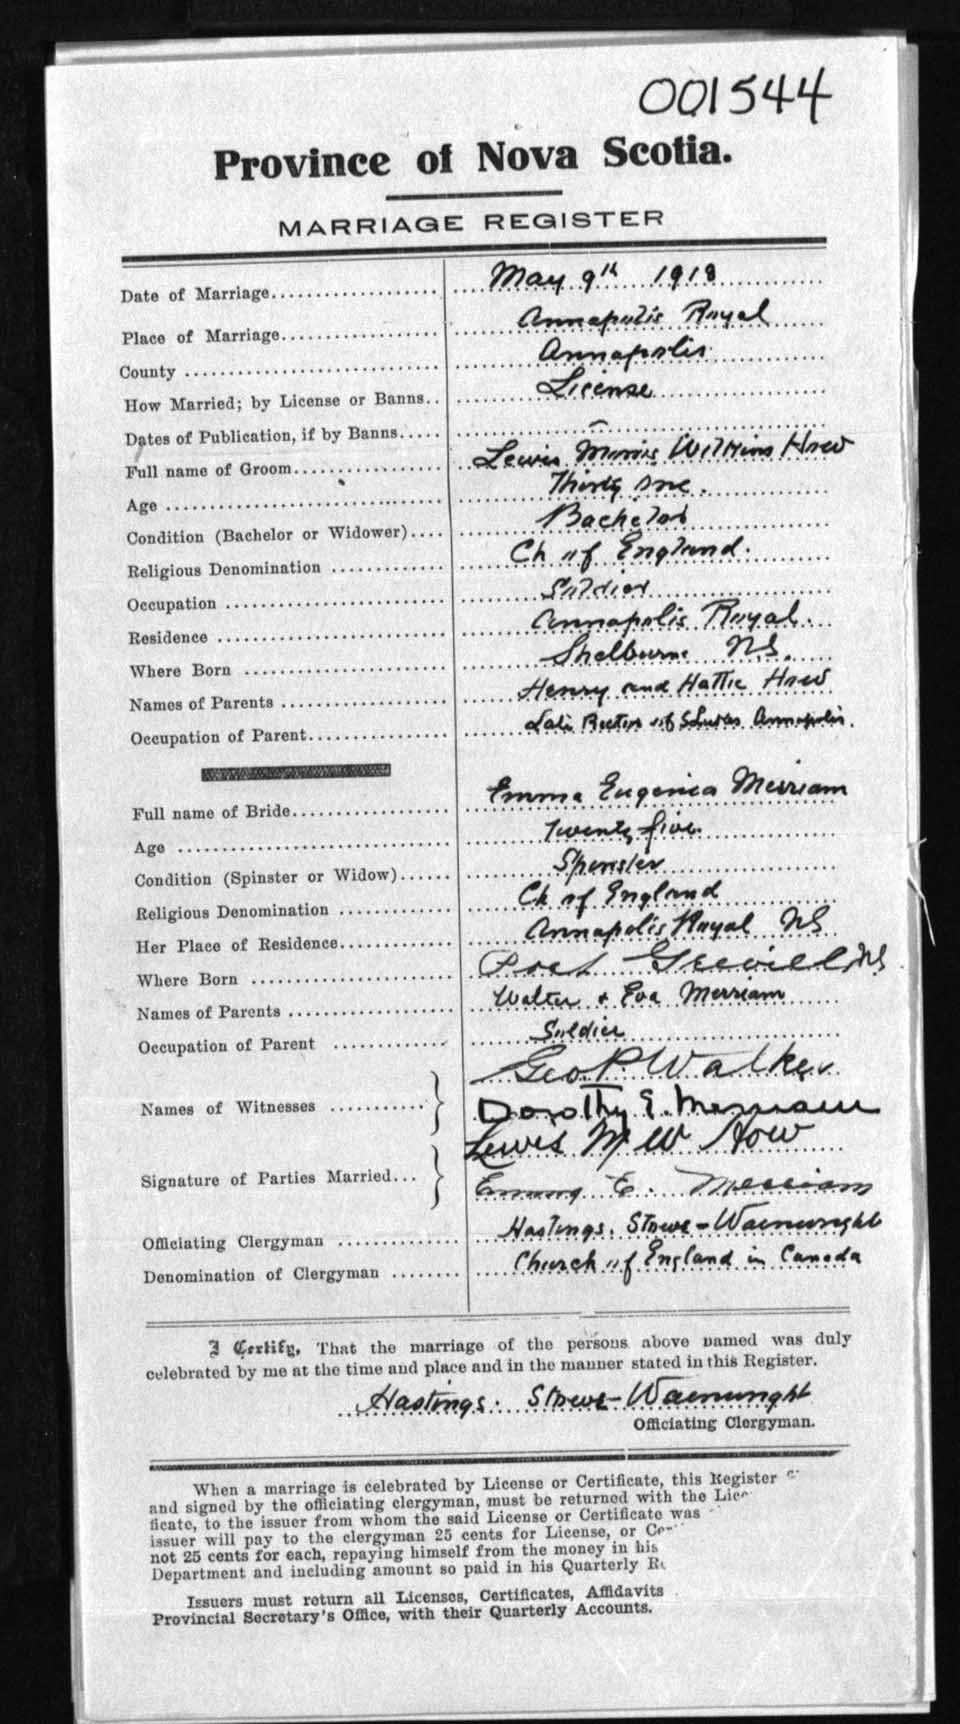 001544
Province of Nova Scotia.
MARRIAGE REGISTER
Date of Marriage.................... May 9th 1918
Place of Marriage................... Annapolis Royal
County ............................. Annapolis
How Married; by License or Banns.. License
Dates of Publication, if by Banns..... —
Full name of Groom.................. Lewis Morris Wilkins How
Age ................................ Thirty one.
Condition (Bachelor or Widower).... Bachelor
Religious Denomination ............. Ch of England.
Occupation ......................... Soldier
Residence .......................... Annapolis Royal.
Where Born ......................... Shelburne N.S.
Names of Parents ................... Henry and Hattie How
Occupation of Parent................ Late Rector of S Lukes Annapolis.
Full name of Bride.................. Emma Eugenica Merriam
Age ................................ Twenty five.
Condition (Spinster or Widow)...... Spinster
Religious Denomination ............. Ch of England
Her Place of Residence............. Annapolis Royal NS
Where Born ......................... Port Greville NS
Names of Parents ................... Walter + Eva Merriam
Occupation of Parent ............. Soldier
Geo P. Walker
Names of Witnesses ........... } Dorothy E. Merriam
Lewis M W How
Signature of Parties Married... } Emma E. Merriam
Officiating Clergyman .............. Hastings. Stowe-Wainwright
Denomination of Clergyman ........ Church of England in Canada
I Certify, That the marriage of the persons above named was duly
celebrated by me at the time and place and in the manner stated in this Register.
Hastings. Stowe-Wainwright
Officiating Clergyman.
When a marriage is celebrated by License or Certificate, this Register
and signed by the officiating clergyman, must be returned with the Lice
ficate, to the issuer from whom the said License or Certificate was
issuer will pay to the clergyman 25 cents for License, or Ce
not 25 cents for each, repaying himself from the money in his
Department and including amount so paid in his Quarterly Re
Issuers must return all Licenses, Certificates, Affidavits
Provincial Secretary's Office, with their Quarterly Accounts.